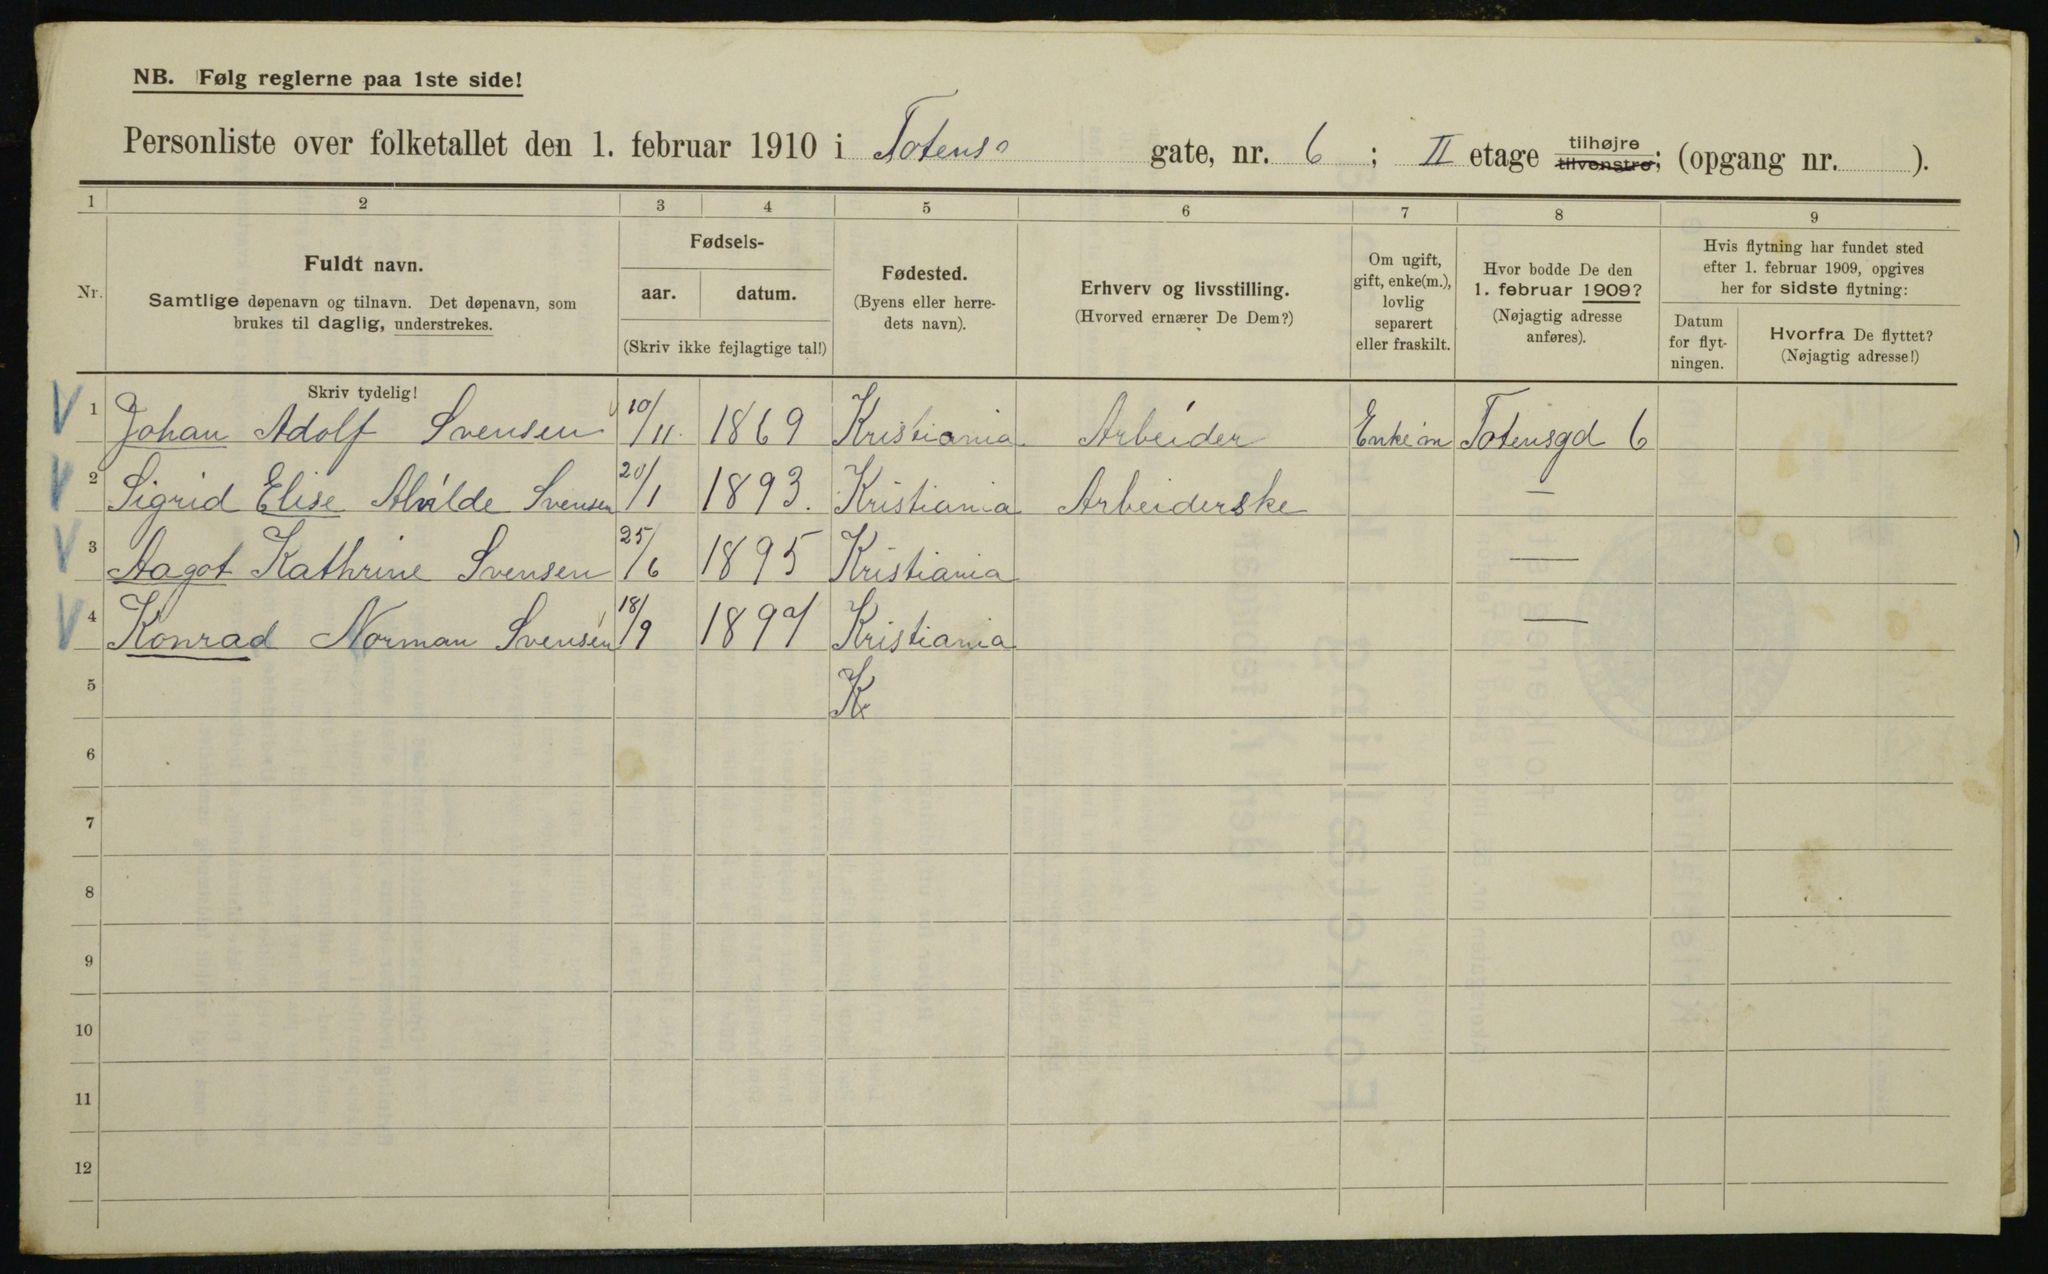 NB. Følg reglerne paa 1ste side!
Personliste over folketallet den 1. februar 1910 i Totens gate, nr. 6 ; II etage tilhøjre tilvenstre; (opgang nr. ).
1 2 3 4 5 6 7 8 9
Nr.
Fuldt navn.
Samtlige døpenavn og tilnavn. Det døpenavn, som
brukes til daglig, understrekes.
Skriv tydelig!
Fødsels-
aar. datum.
(Skriv ikke fejlagtige tal!)
Fødested.
(Byens eller herre-
dets navn).
Erhverv og livsstilling.
(Hvorved ernærer De Dem?)
Om ugift,
gift, enke(m.),
lovlig
separert
eller fraskilt.
Hvor bodde De den
1. februar 1909?
(Nøjagtig adresse
anføres).
Hvis flytning har fundet sted
efter 1. februar 1909, opgives
her for sidste flytning:
Datum
for flyt-
ningen.
Hvorfra De flyttet?
(Nøjagtig adresse!)
V 1 Johan Adolf Svensen 10/11. 1869 Kristiania Arbeider Enkem Totensgd 6
V 2 Sigrid Elise Alvilde Svensen 20/1 1893. Kristiania Arbeiderske —
V 3 Aagot Kathrine Svensen 25/6 1895 Kristiania —
V 4 Konrad Norman Svensen 18/9 1897 Kristiania —
5 K
6
7
8
9
10
11
12